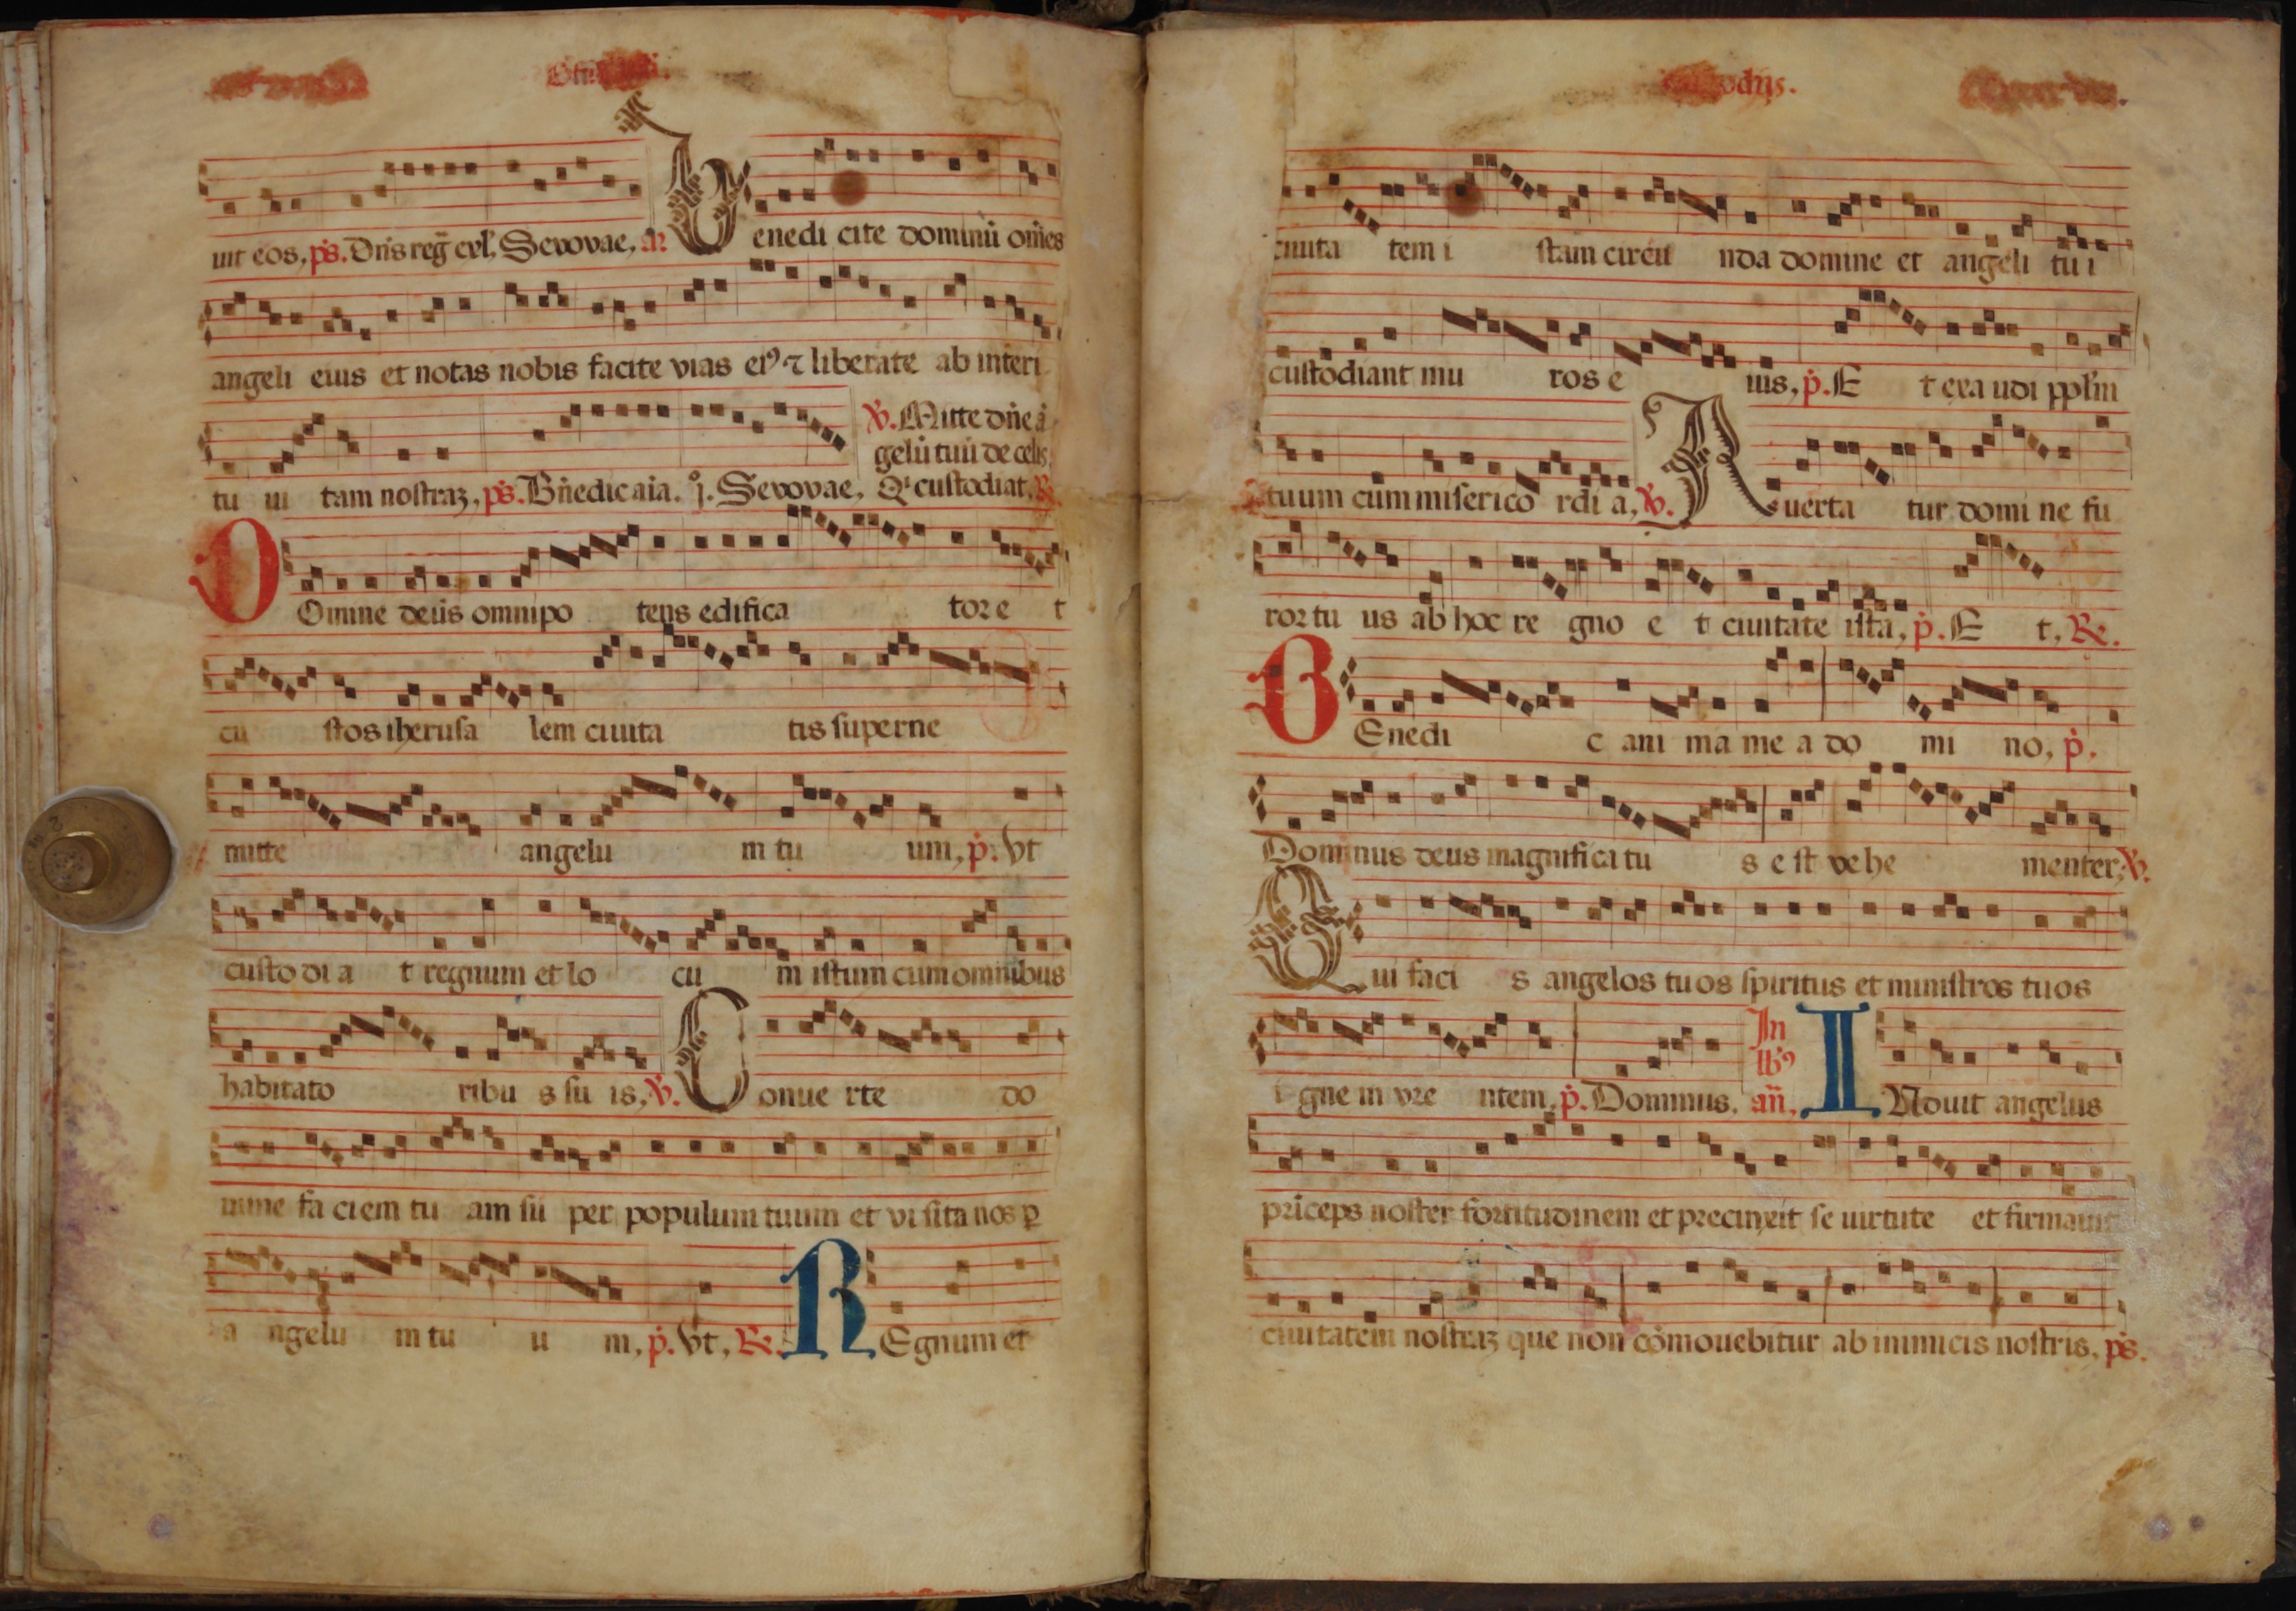 odijs.
uit eos, ps. Dn̄s reḡ exl̓, Seuouae, añ Benedi cite dominū om̄es
angeli eius et notas nobis facite vias eiꝰ ⁊ liberate ab interi
tu ui tam nostraꝫ, ps. Bn̄edic aīa. j. Seuouae,
V. Mitte dn̄e ā
gelū tuū de celis,
Qͥ custodiat, R
DOmine deus omnipo tens edifica tor e t
cu stos iherusa lem ciuita tis superne
mitte angelu m tu um, p. Vt
custo di a t regnum et lo cu m istum cum omnibus
habitato ribu s su is, V. Conue rte do
mine fa ciem tu am su per populum tuum et visita nos ꝑ
a ngelu m tu u m, p. Vt, Re. REgnum et
ciuita tem i stam circū nda domine et angeli tu i
custodiant mu ros e ius, p. E t exa udi ppl̓m
tuum cum miserico rdi a, V. Auerta tur domi ne fu
ror tu us ab hoc re gno e t ciuitate ista, p. E t, Re.
BEnedi c ani ma me a do mi no, p.
Dominus deus magnifica tu s e st vehe menter, V.
Qui faci s angelos tuos spiritus et ministros tuos
i gne m vre ntem, p. Dominus. an̄, In lb̓ꝰ INduit angelus
prīceps noster fortitudinem et precinxit se uirtute et firmauit
ciuitatem nostraꝫ que non cōmouebitur ab inimicis nostris, ps.